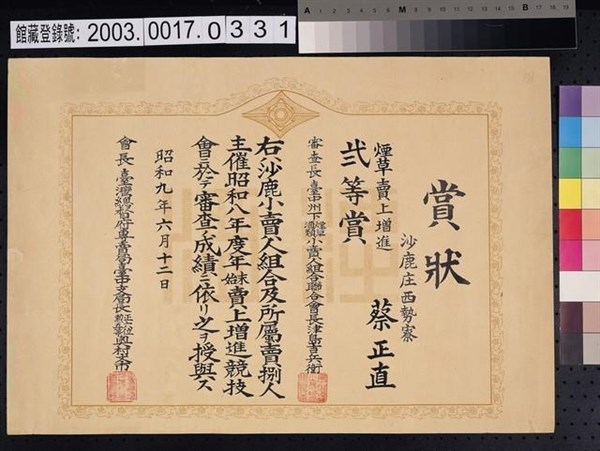 館藏登錄號: 2003.0017.0331
A 1 2 3 4 5 6 7 8 9 10 11 12 13 14 15 16 17 18 19
M
B
賞狀
沙鹿庄西勢寮
蔡正直
煙草賣上增進
貳等賞
審查長臺中州下煙草酒類小賣人組合聯合會長津島吉兵衛
右沙鹿小賣人組合及所屬賣捌人
主催昭和八年度年末年始賣上增進競技
會ニ於テ審查ノ成績ニ依リ之ヲ授與ス
昭和九年六月十二日
會長臺灣總督府專賣局臺中支局長